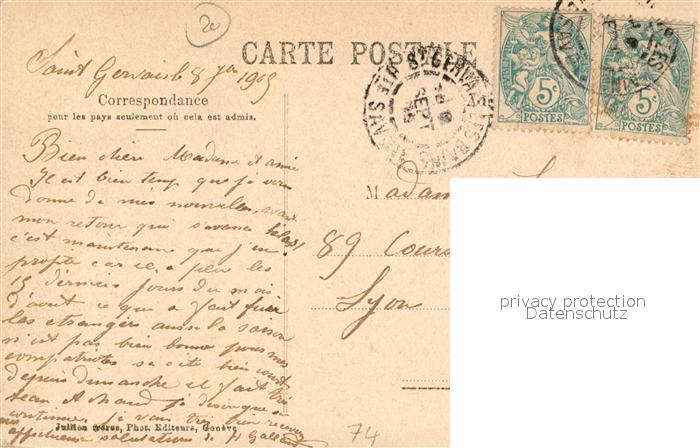 20
CARTE POSTALE
Saint Gervais le 8 7bre 1905
Correspondance
pour les pays seulement où cela est admis.
ST GERVAIS LES BAINS
HTE SAVOIE
SEPT
5c
POSTES
5c
POSTES
Bien chère Madame et amie
Il est bien temps que je vous
donne de mes nouvelles, avant
mon retour qui s'avance hélas!
c'est maintenant que j'en
profite car il a plu les
15 derniers jours du mois
d'août ce qui a fait fuir
les étrangers aussi la saison
n'est pas bien bonne pour nos
compatriotes sa été bien court
depuis dimanche il fait très
beau et chaud je désire que
continue je vais très bien recevez
affectueuses salutations de H
Madam
89 Cours
Lyon
privacy protection
Datenschutz
Jullien frères, Phot. Editeurs, Genève
74